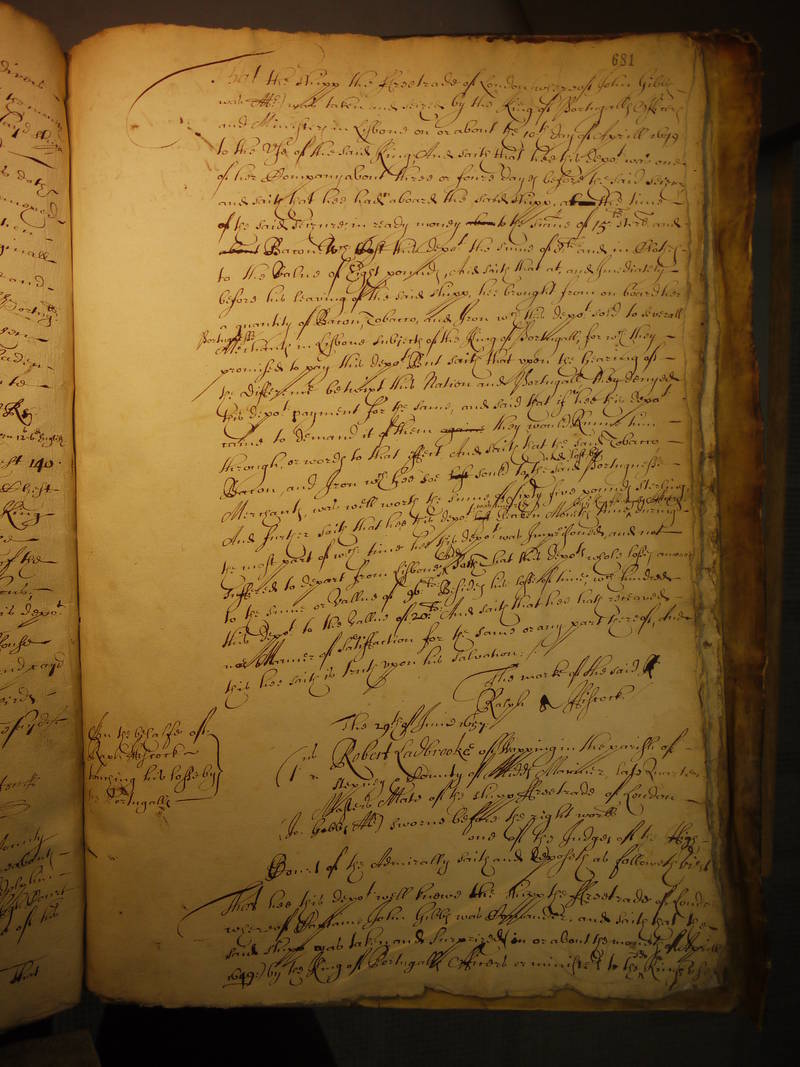 681
That the shipp the Freetrade of London whereof John Gibbs
was Mr) was taken and seized by the King of Portugalls Officers
and Ministers in Lisbone on or about the 10th day of Aprill 1649
to the use of the said King And saith that hee this depot was one
of her Company about three or foure dayes before the said seizure
and saith that hee had aboard the said shipp, at the time
of the said seizure in ready money to the summe of 15li sterl and
Bacon wch Cost this depot the summe of and in Clothes
to the value of Eight pounds, And saith that at, and Imediately
before his leaving of the said shipp, hee brought from on board her
a quantity of Bacon, Tobacco, and Iron wch this depot sold to severall
Portuguess
Merchants in Lisbone subjects of the King of Portugall, for wch they
promised to pay this depot But saith that upon the hearing of
the difference betwixt this Nation and Portugall they denyed
this depot payment for the same, and said that if hee this depot
came to demand it of them againe they would Runne him
through, or words to that effect And saith that the said Tobacco
Bacon, and Iron wch hee soe sould to the said Portuguesse
and lost by
Merchants, was well worth the summe of sixty five pounds sterling
And further saith that hee this depot lost eleaven Moneths time, during
the most part of wch time hee this depot was Imprisoned, and not
suffered to depart from Lisbone, And saith That this depots whole losse amounts
to the summe or vallue of 96li Besides his losse of time, wch hindered
this depot to the vallue of 20li And saith that hee hath received
noe Manner of satisfaction for the same or any part thereof, And
this hee saith is truth upon his salvation:
The marke of the said
Ralph Hiscock
The 29th of June 1657
On the behalfe of
Raph Hiscock
touching his losse by
the Portugalls
Robert Ladbrooke of Wapping in the parish of
Stepney County of Midds Mariner, late Quarter
Masters Mate of the shipp Freetrade of London
(Jo: Gibbs Mr) sworne before the right worll
one of the Judges of the High
Court of the Admiralty saith and deposeth as followeth vizt
That hee this depot well knowes the shipp the Freetrade of London
whereof Captaine John Gibbs was Commander, and saith that the
said shipp was taken and surprized in or about the moneth of Aprill
1649) by the King of Portugalls Officers or ministers to the Kings use